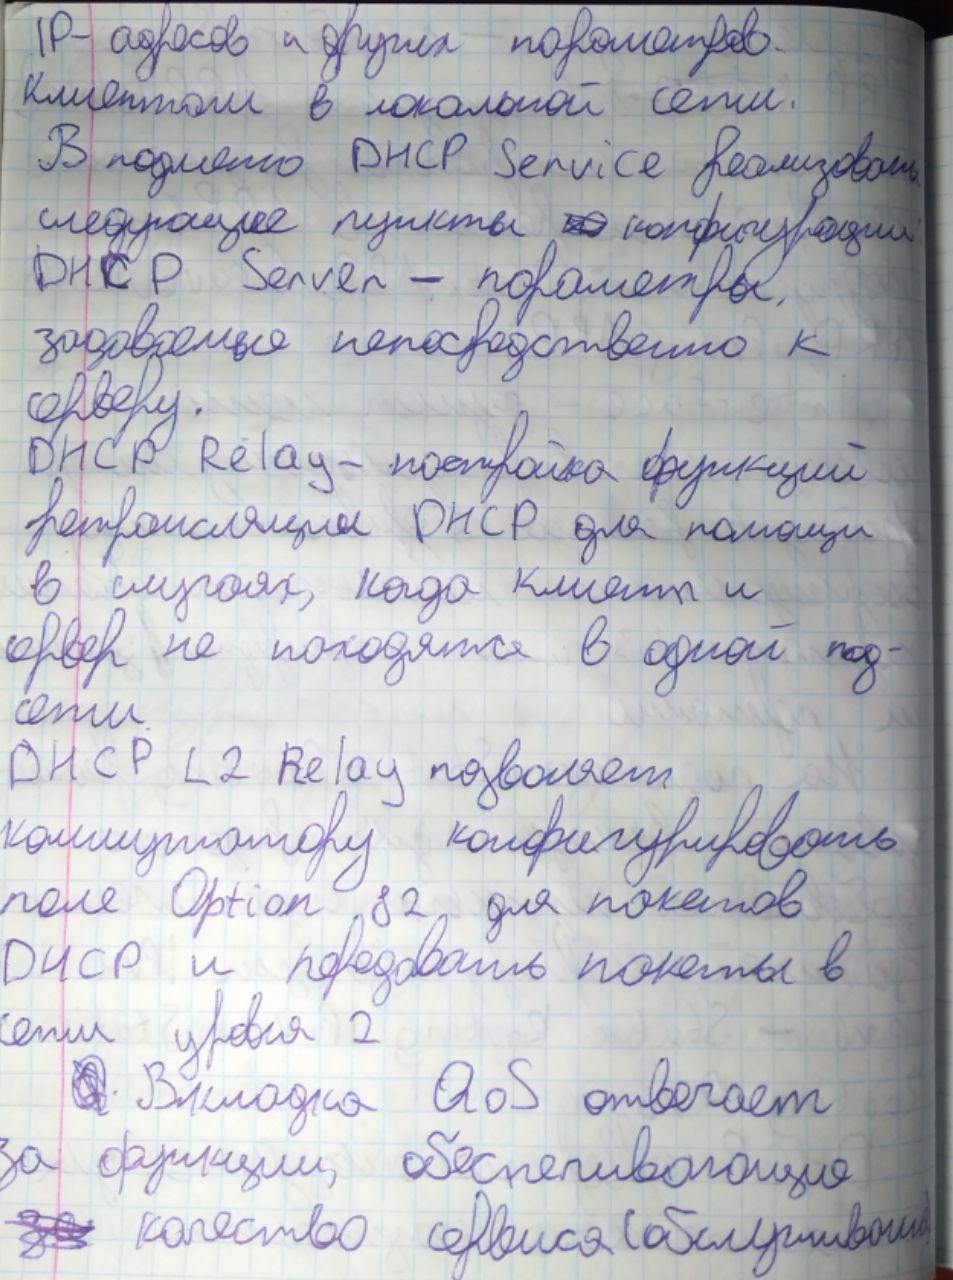 IP-адресов и других параметров.
клиентам в локальной сети.
В подменю DHCP Service реализованы
следующие пункты конфигурации:
DHCP Server – параметры,
задаваемые непосредственно к
серверу.
DHCP Relay – настройка функций
ретрансляции DHCP для помощи
в случаях, когда клиенты и
сервер не находятся в одной под-
сети.
DHCP L2 Relay позволяет
коммутатору конфигурировать
поле Option 82 для пакетов
DHCP и передавать пакеты в
сети уровня 2
Вкладка QoS отвечает
за функции, обеспечивающие
качество сервиса (обслуживания)